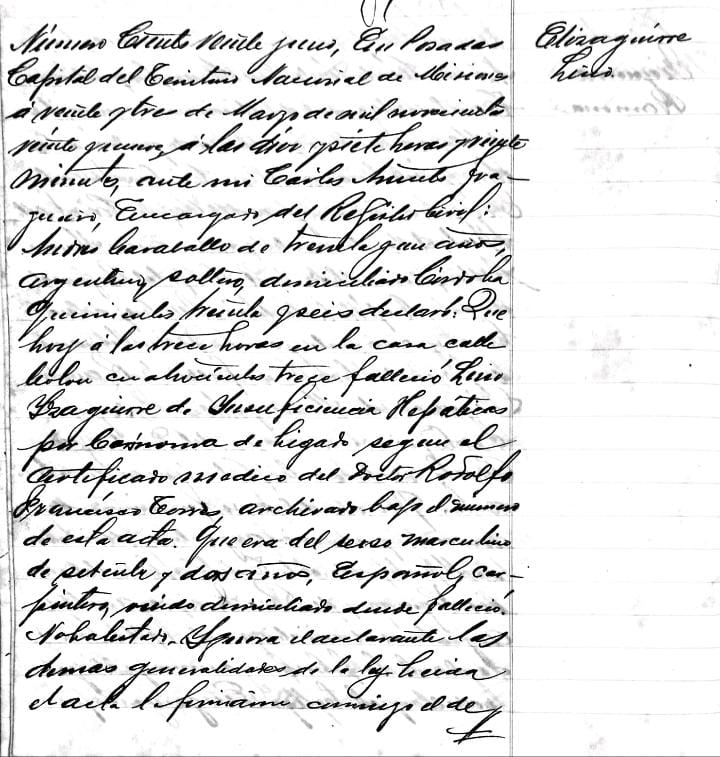 Número Ciento veinte y uno, En Posadas
Capital del Territorio Nacional de Misiones
á veinte y tres de Marzo de mil novecientos
veinte y nueve, á las diez y siete horas y veinte
minutos, ante mi Carlos
Encargado del Registro Civil:
Caraballo de treinta y un años,
Argentino, soltero, domiciliado Córdoba
Quinientos treinta y seis declaró: Que
hoy á las trece horas en la casa calle
Colon cuatrocientos trece falleció Lino
Yzaguirre de Insuficiencia Hepática
por Carcinoma de hígado segun el
Certificado medico del Doctor Rodolfo
Francisco Torres, archivado bajo el número
de esta acta. Que era del sexo masculino
de setenta y dos años, Español, car-
pintero, viudo domiciliado donde falleció.
No ha testado. Ygnora el declarante las
demas generalidades de la ley. Leida
el acta la firmaron conmigo el de
Elizaguirre
Lino.